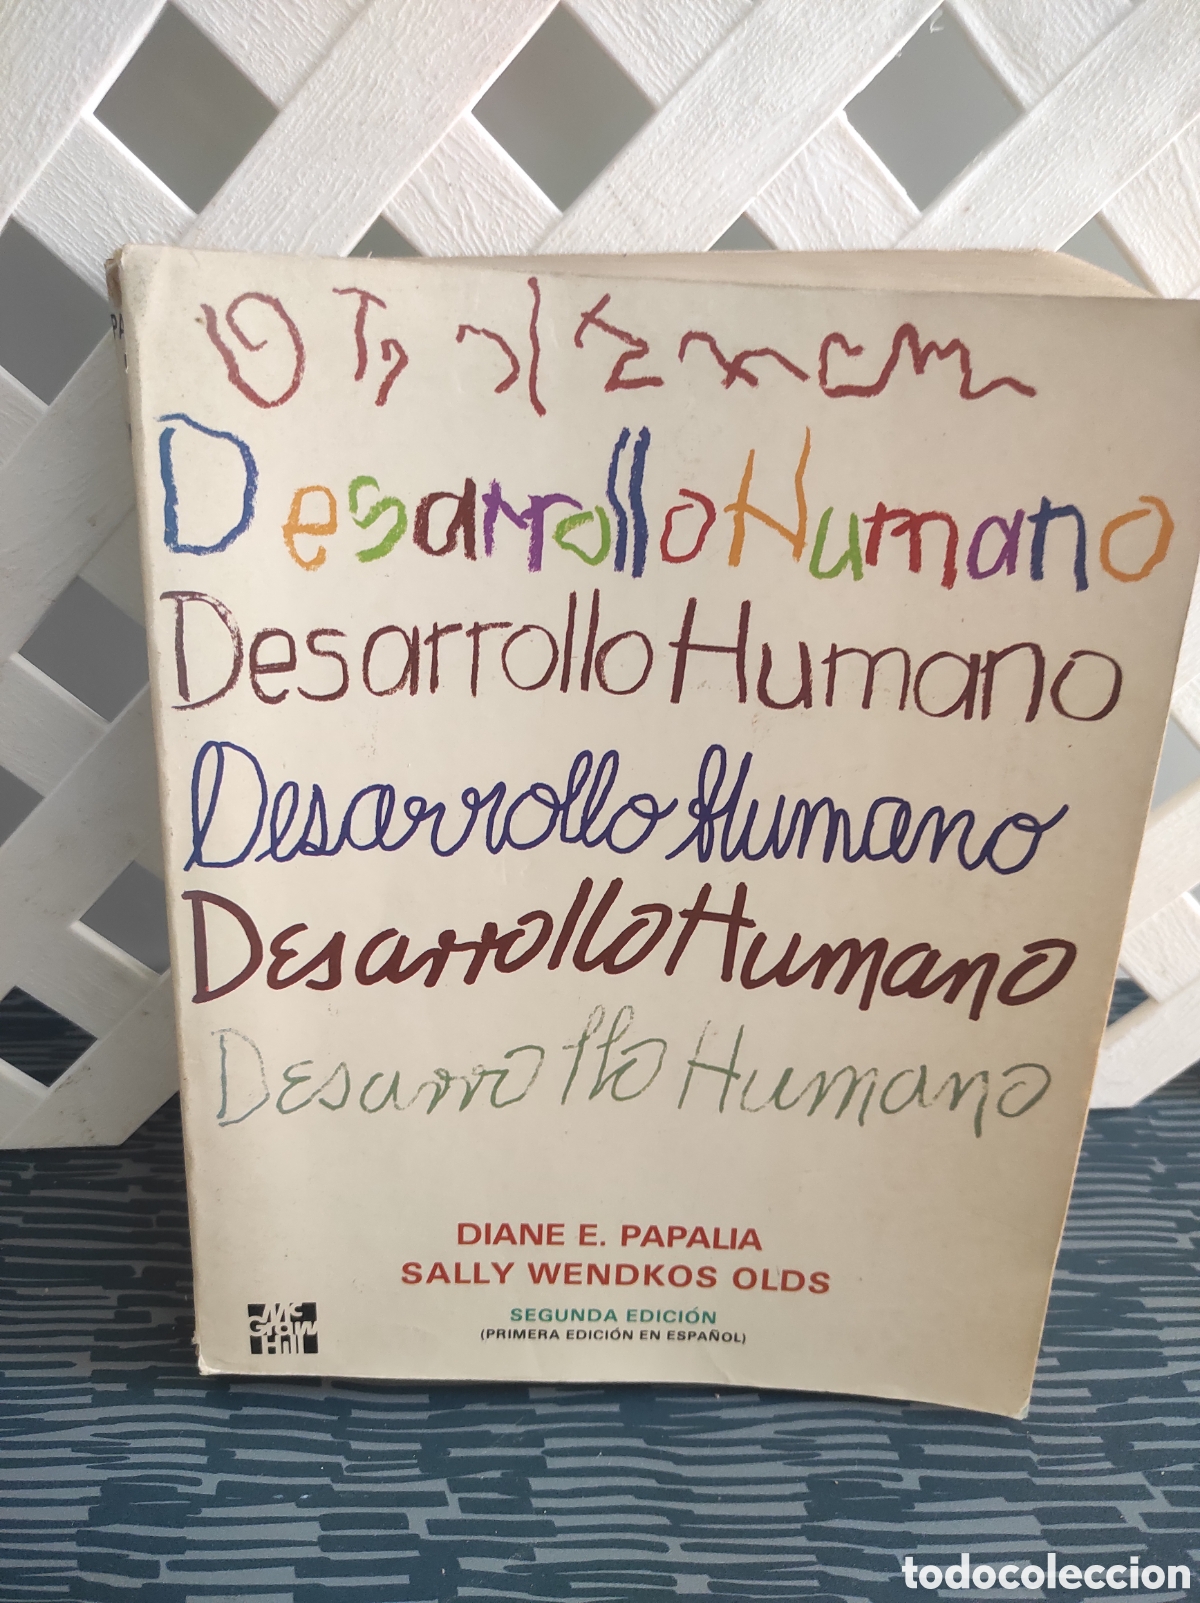 Desarrollo Humano
Desarrollo Humano
Desarrollo Humano
Desarrollo Humano
Desarrollo Humano
DIANE E. PAPALIA
SALLY WENDKOS OLDS
SEGUNDA EDICIÓN
(PRIMERA EDICIÓN EN ESPAÑOL)
Mc
Graw
Hill
todocoleccion